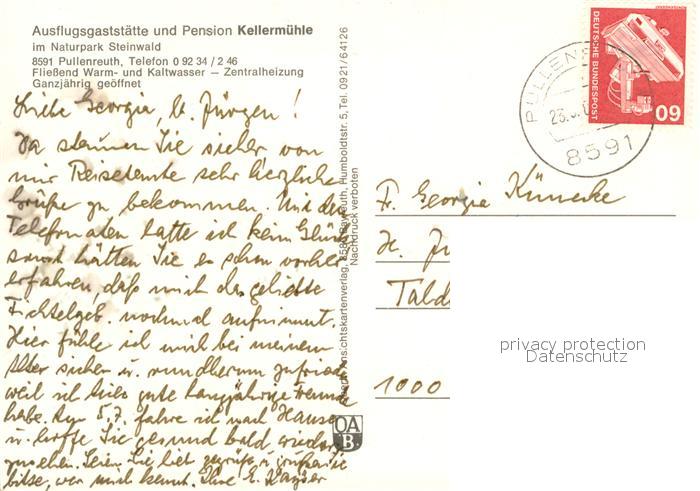 Ausflugsgaststätte und Pension Kellermühle
im Naturpark Steinwald
8591 Pullenreuth, Telefon 0 92 34 / 2 46
Fließend Warm- und Kaltwasser — Zentralheizung
Ganzjährig geöffnet
Liebe Georgia, u. Jürgen!
Da staunen Sie sicher von
mir Reisetante sehr herzliche
Grüße zu bekommen. Mit dem
Telefonaten hatte ich kein Glück
sonst hätten Sie es schon vorher
erfahren, daß mich das geliebte
Fichtelgeb. nochmal aufnimmt.
Hier fühle ich mich bei meinem
Alter sicher u. rundherum zufrieden
weil ich hier gute langjährige Freunde
habe. Am 5.7. fahre ich nach Hause
u. hoffe Sie gesund bald wieder
zu sehen. Seien Sie lieb gegrüßt u. grüßen Sie
bitte, wer mich kennt. Ihre E.
Ansichtskartenverlag, 858 Bayreuth, Humboldtstr. 5, Tel. 0921/64126
Nachdruck verboten
OA
B.
DEUTSCHE BUNDESPOST
60
8591
Fr. Georgia Künecke
H. Jü
Tald
1000
privacy protection
Datenschutz